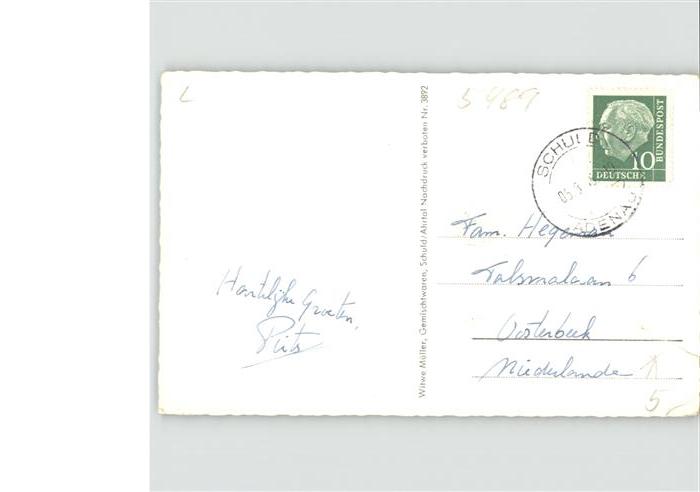 L
5489
BUNDESPOST
10
DEUTSCHE
SCHULD
ADENAU
Fam. Hegeman
Talsmalaan 6
Oosterbeek
Niederlande
5,-
Hartelijke Groeten,
Piets
Witwe Müller, Gemischtwaren, Schuld/Ahrtal Nachdruck verboten Nr. 3892